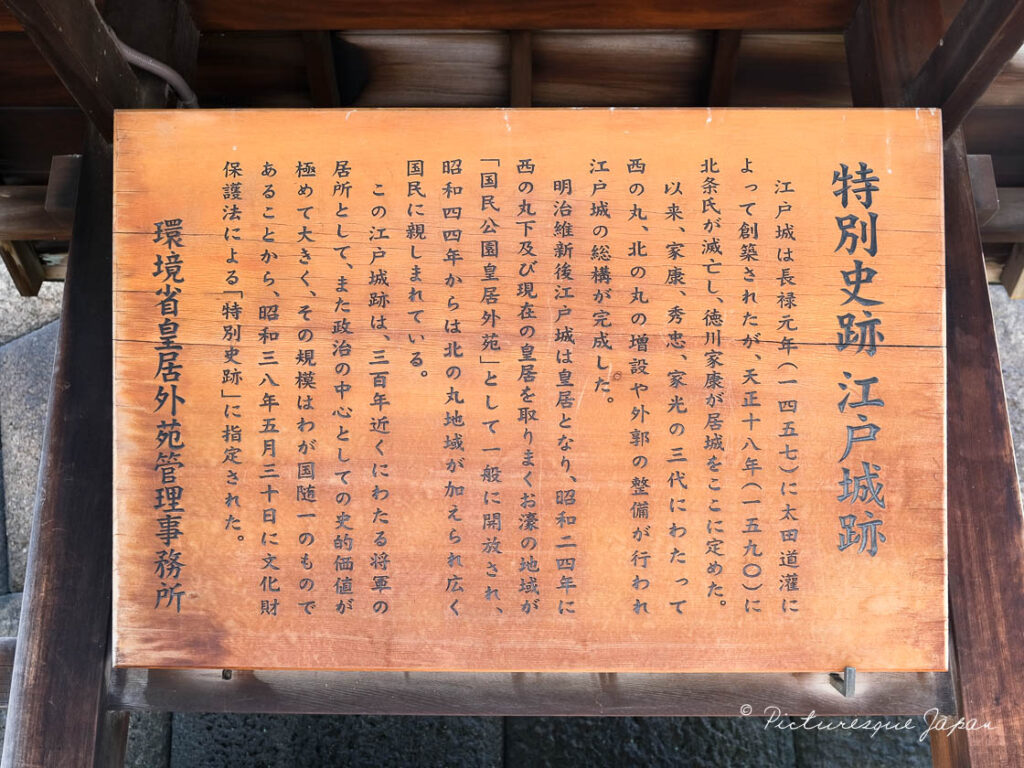 特別史跡 江戸城跡
江戸城は長禄元年(一四五七)に太田道灌に
よって創築されたが、天正十八年(一五九〇)に
北条氏が滅亡し、徳川家康が居城をここに定めた。
以来、家康、秀忠、家光の三代にわたって
西の丸、北の丸の増設や外郭の整備が行われ
江戸城の総構が完成した。
明治維新後江戸城は皇居となり、昭和二四年に
西の丸下及び現在の皇居を取りまくお濠の地域が
「国民公園皇居外苑」として一般に開放され、
昭和四四年からは北の丸地域が加えられ広く
国民に親しまれている。
この江戸城跡は、三百年近くにわたる将軍の
居所として、また政治の中心としての史的価値が
極めて大きく、その規模はわが国随一のもので
あることから、昭和三八年五月三十日に文化財
保護法による「特別史跡」に指定された。
環境省皇居外苑管理事務所
© Picturesque Japan